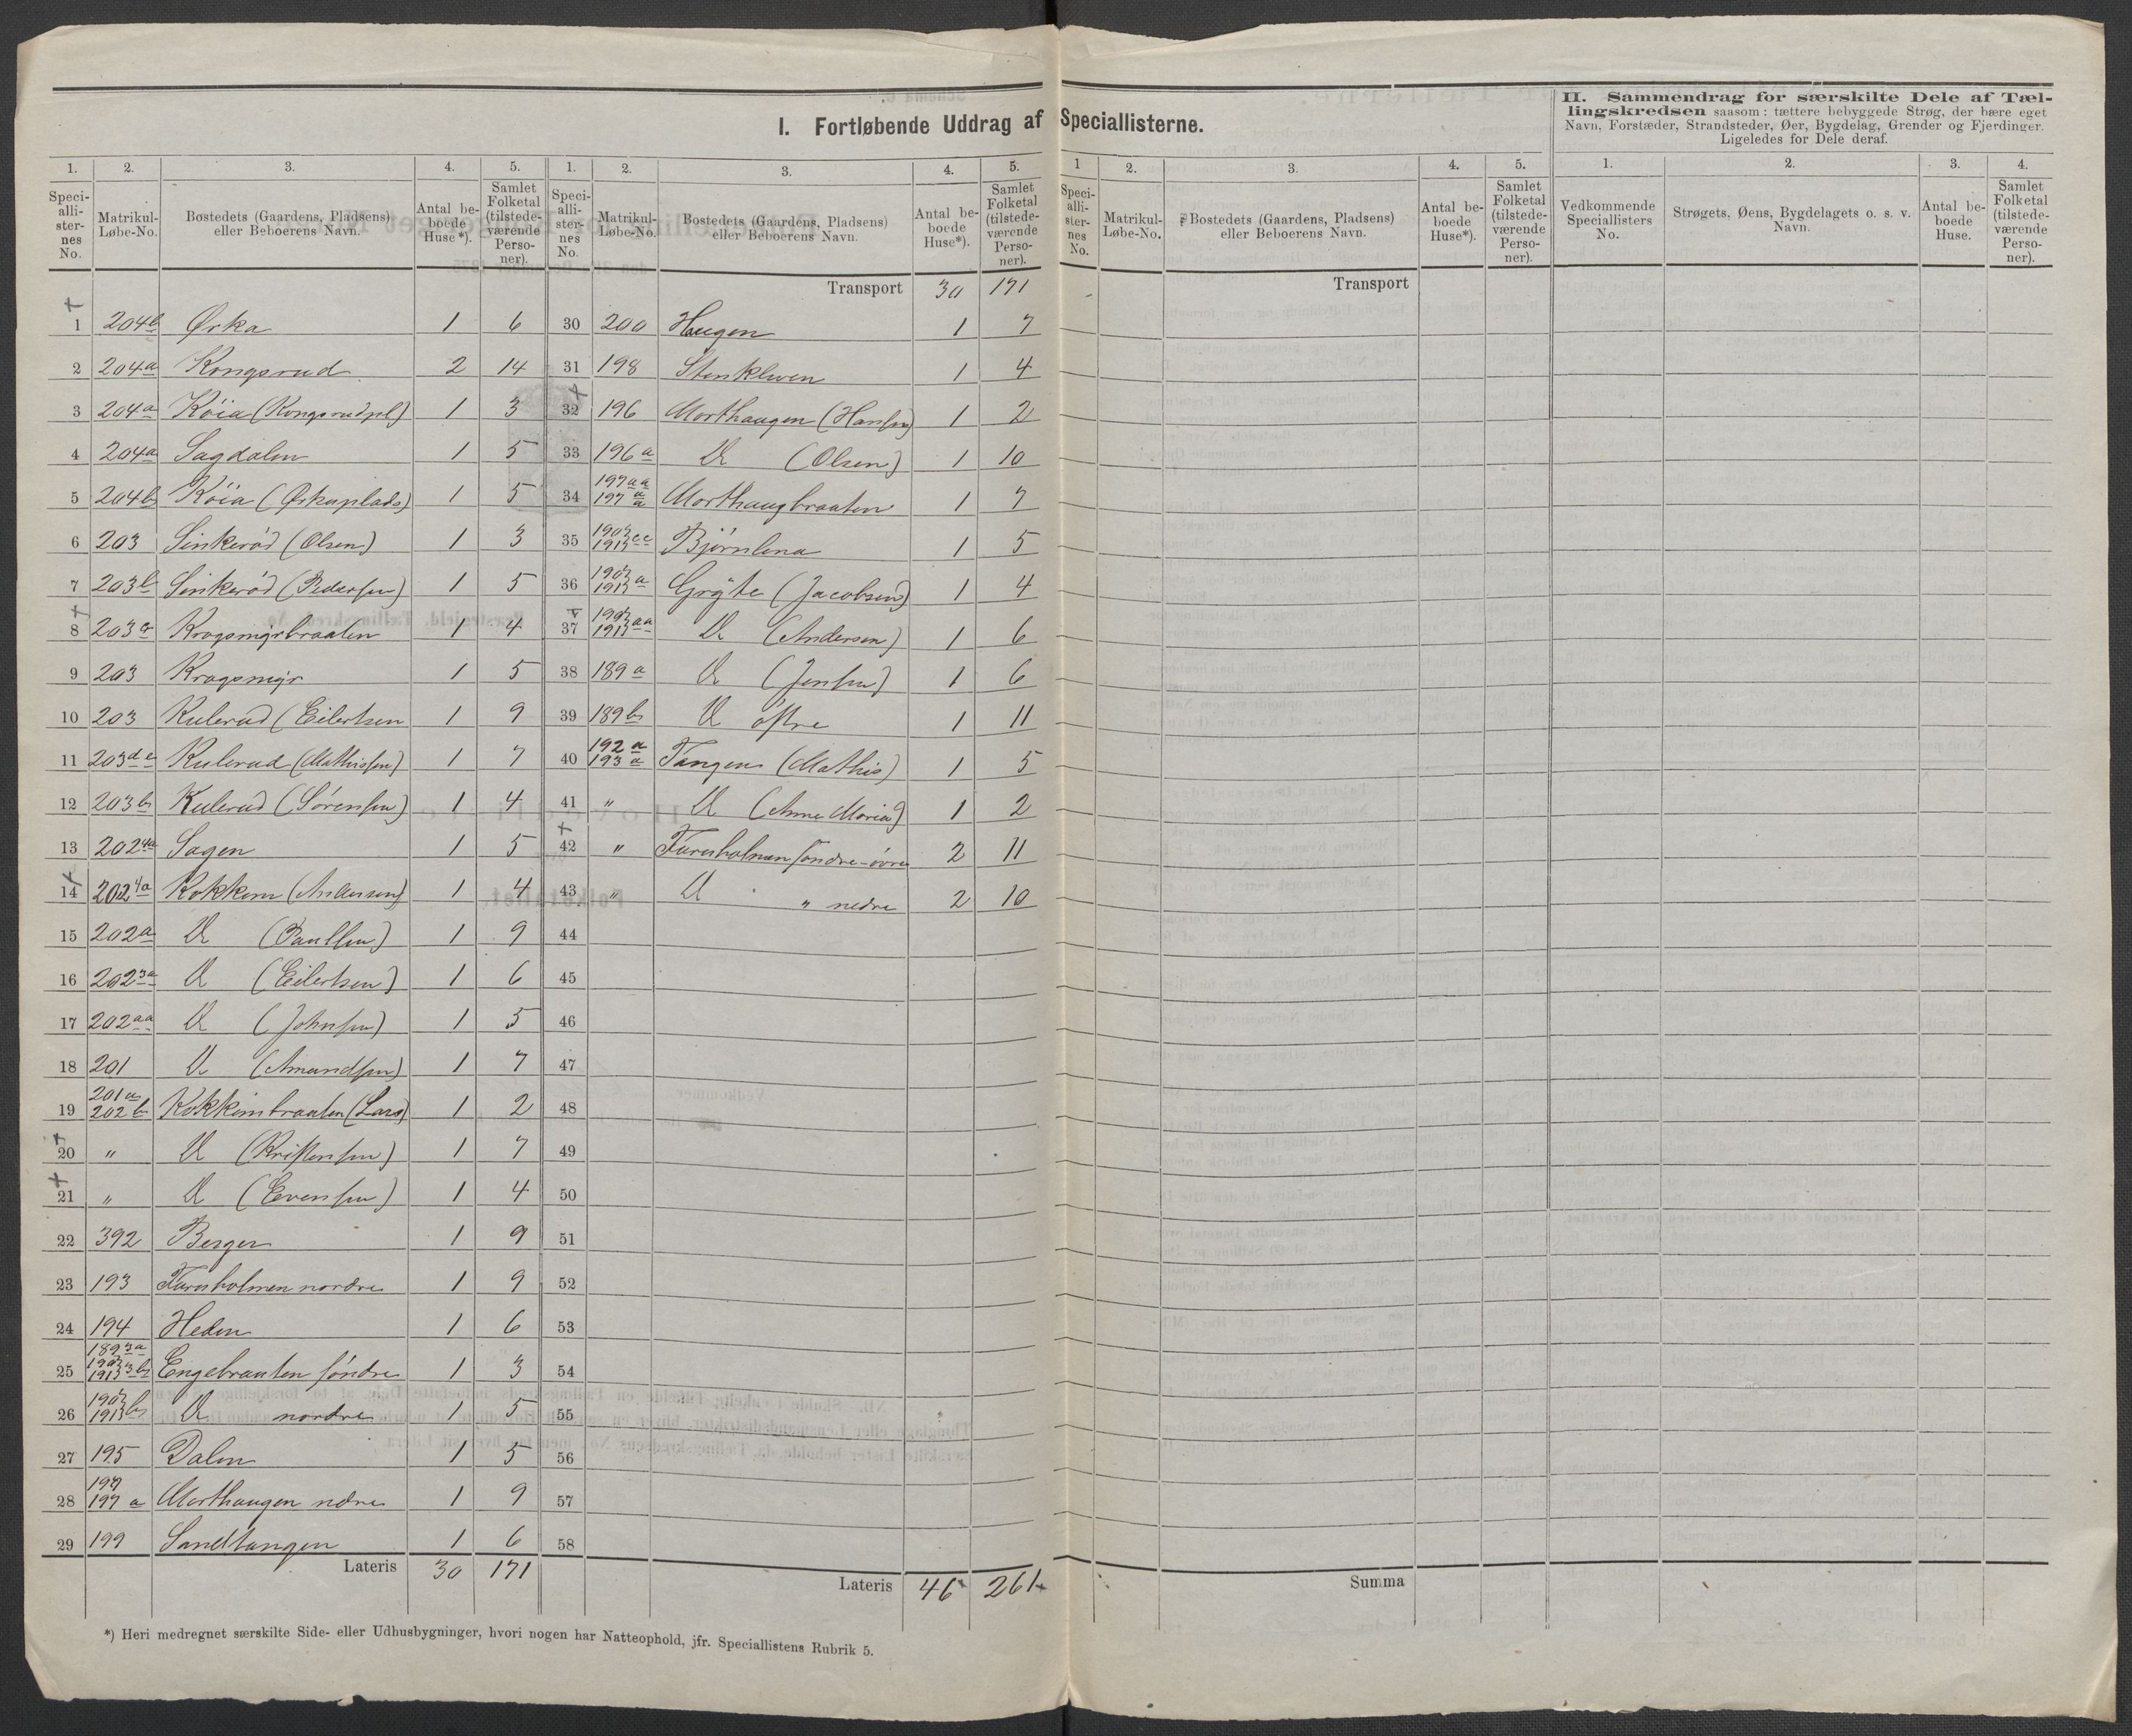 I. Fortløbende Uddrag af Speciallisterne.
II. Sammendrag for særskilte Dele af Tæl-
lingskredsen saasom: tættere bebyggede Strøg, der bære eget
Navn, Forstæder, Strandsteder, Øer, Bygdelag, Grender og Fjerdinger.
Ligeledes for Dele deraf.
1. 2. 3. 4. 5. 1. 2. 3. 4. 5. 1 2. 3. 4. 5. 1. 2. 3. 4.
Speci-alli-ster-nes No. Matrikul-Løbe-No. Bostedets (Gaardens, Pladsens) eller Beboerens Navn. Antal be-boede Huse*). Samlet Folketal (tilstede-værende Perso-ner).
Speci-alli-ster-nes No. Matrikul-Løbe-No. Bostedets (Gaardens, Pladsens) eller Beboerens Navn. Antal be-boede Huse*). Samlet Folketal (tilstede-værende Perso-ner).
Speci-alli-ster-nes No. Matrikul-Løbe-No. Bostedets (Gaardens, Pladsens) eller Beboerens Navn. Antal be-boede Huse*). Samlet Folketal (tilstede-værende Perso-ner).
Vedkommende Speciallisters No. Strøgets, Øens, Bygdelagets o. s. v. Navn. Antal be-boede Huse. Samlet Folketal (tilstede-værende Perso-ner).
1 204b Ørka 1 6
2 204a Kongsrud 2 14
3 204a Köia (Kongsrudpl) 1 3
4 204a Sagdalen 1 5
5 204b Köia (Ørkaplads) 1 5
6 203 Sinkeröd (Olsen) 1 3
7 203b Sinkeröd (Pedersen) 1 5
8 203a Krogsmyrbraaten 1 4
9 203 Krogsmyr 1 5
10 203 Kulerud (Eilertsen 1 9
11 203de Kulerud (Mathissen) 1 7
12 203b Kulerud (Sörensen) 1 4
13 2024a Sagen 1 5
14 2024a Kokkem (Andersen) 1 4
15 202a D (Paulsen) 1 9
16 2023a D (Eilertsen) 1 6
17 202aa D (Johnsen) 1 5
18 201 D (Amundsen) 1 7
19 201a 202b Kokkimbraaten (Lars) 1 2
20 " D (Kristensen) 1 7
21 " D (Evensen) 1 4
22 392 Berger 1 9
23 193 Furuholmen nordre 1 9
24 194 Heden 1 6
25 Engebraaten söndre 1 3
26 D nordre 1 5
27 195 Dalen 1 5
28 197 a Morthaugen nedre 1 9
29 199 Sandtangen 1 6
Lateris 30 171
Transport 30 171
30 200 Haugen 1 7
31 198 Stenkleven 1 4
32 196 Morthaugen (Hansen) 1 2
33 196a D (Olsen) 1 10
34 197aa 197a Morthaugbraaten 1 7
35 Björnlena 1 5
36 Gryte (Jacobsen) 1 4
37 D (Andersen) 1 6
38 189a D (Jensen) 1 6
39 189b D östre 1 11
40 192a 193a Tangen (Mathis) 1 5
41 " D (Anne Maria) 1 2
42 " Furuholmen söndre-övre 2 11
43 " D " nedre 2 10
44
45
46
47
48
49
50
51
52
53
54
55
56
57
58
Lateris 46 261
Transport
Summa
*) Heri medregnet særskilte Side- eller Udhusbygninger, hvori nogen har Natteophold, jfr. Speciallistens Rubrik 5.